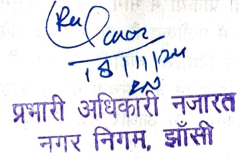 18/11/24
प्रभारी अधिकारी नजारत
नगर निगम, झाँसी